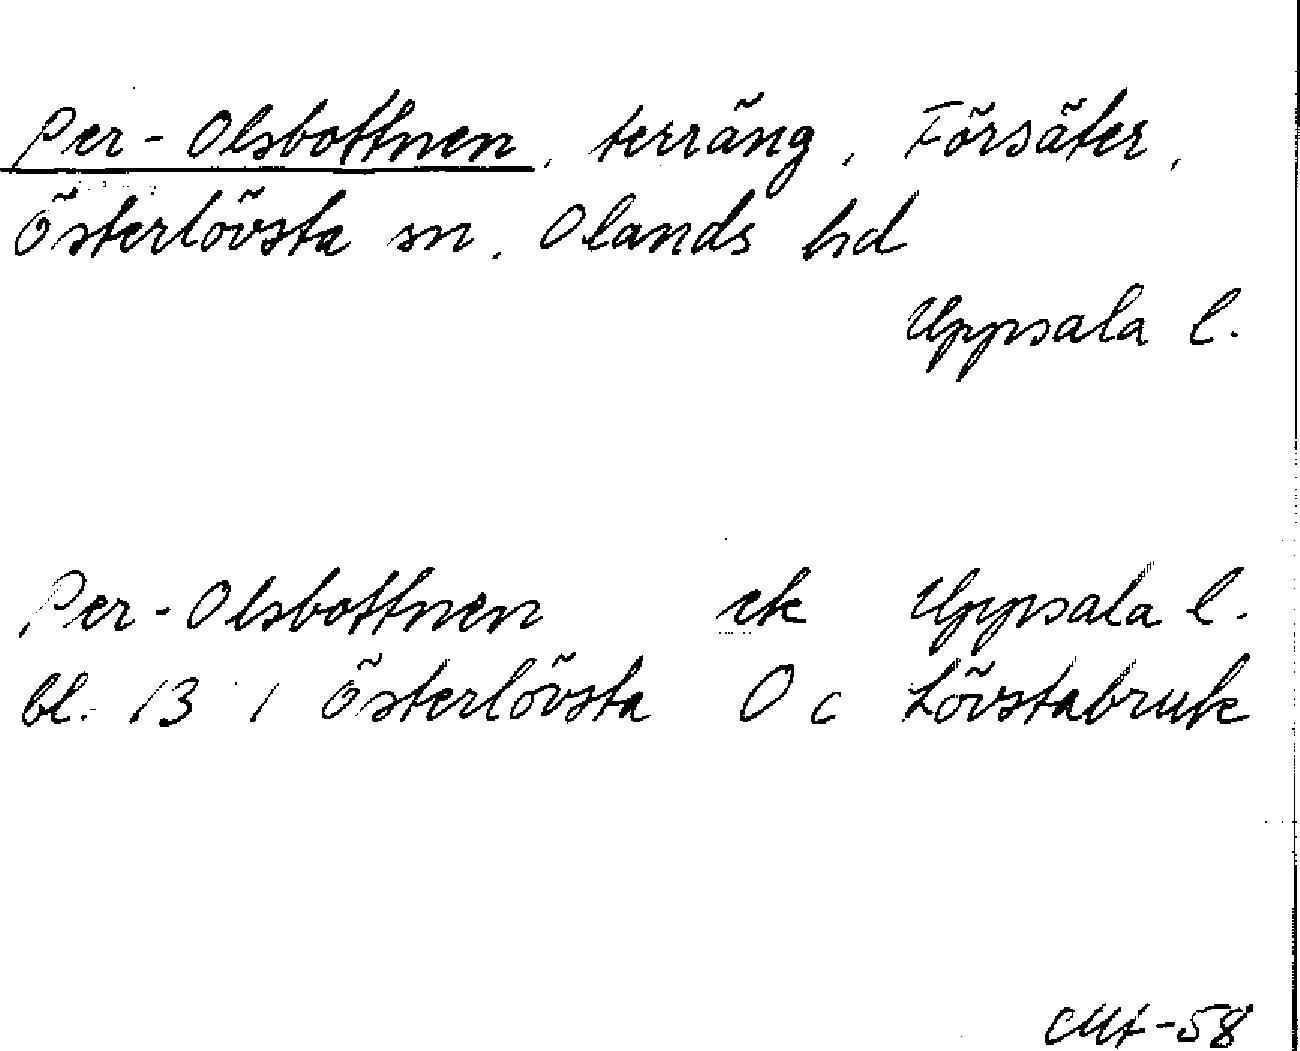 Per-Olsbottnen, terräng, Försäter,
Österlövsta sn, Olands hd
Uppsala l.
Per-Olsbottnen ek Uppsala l.
bl. 13 i Österlövsta O c Lövstabruk
-58